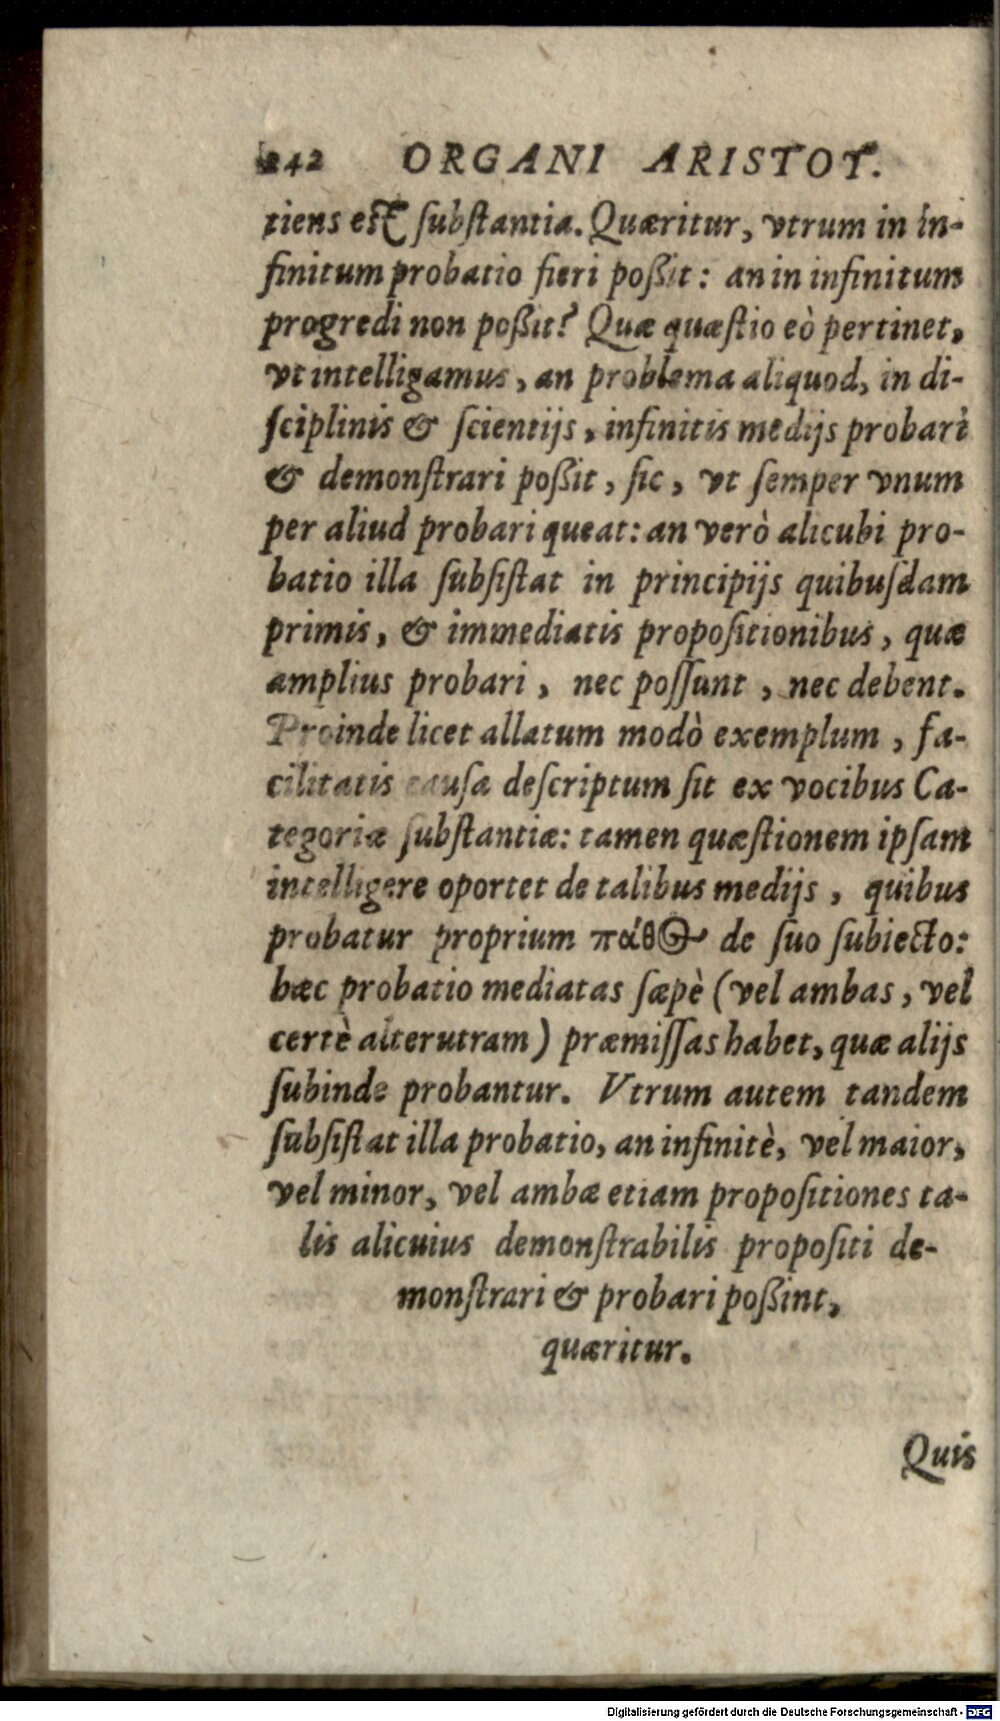 242 ORGANI ARISTOT.
tiens est substantia. Quæritur, vtrum in in-
finitum probatio fieri poßit: an in infinitum
progredi non poßit? Quæ quæstio eò pertinet,
vt intelligamus, an problema aliquod, in di-
sciplinis & scientijs, infinitis medijs probari
& demonstrari poßit, sic, vt semper vnum
per aliud probari queat: an verò alicubi pro-
batio illa subsistat in principijs quibusdam
primis, & immediatis propositionibus, quæ
amplius probari, nec possunt, nec debent.
Proinde licet allatum modò exemplum, fa-
cilitatis causa descriptum sit ex vocibus Ca-
tegoriæ substantiæ: tamen quæstionem ipsam
intelligere oportet de talibus medijs, quibus
probatur proprium πάθος de suo subiecto:
hæc probatio mediatas sæpè (vel ambas, vel
certè alterutram) præmissas habet, quæ alijs
subinde probantur. Vtrum autem tandem
subsistat illa probatio, an infinitè, vel maior,
vel minor, vel ambæ etiam propositiones ta-
lis alicuius demonstrabilis propositi de-
monstrari & probari poßint,
quæritur.
Quis
Digitalisierung gefördert durch die Deutsche Forschungsgemeinschaft - DFG